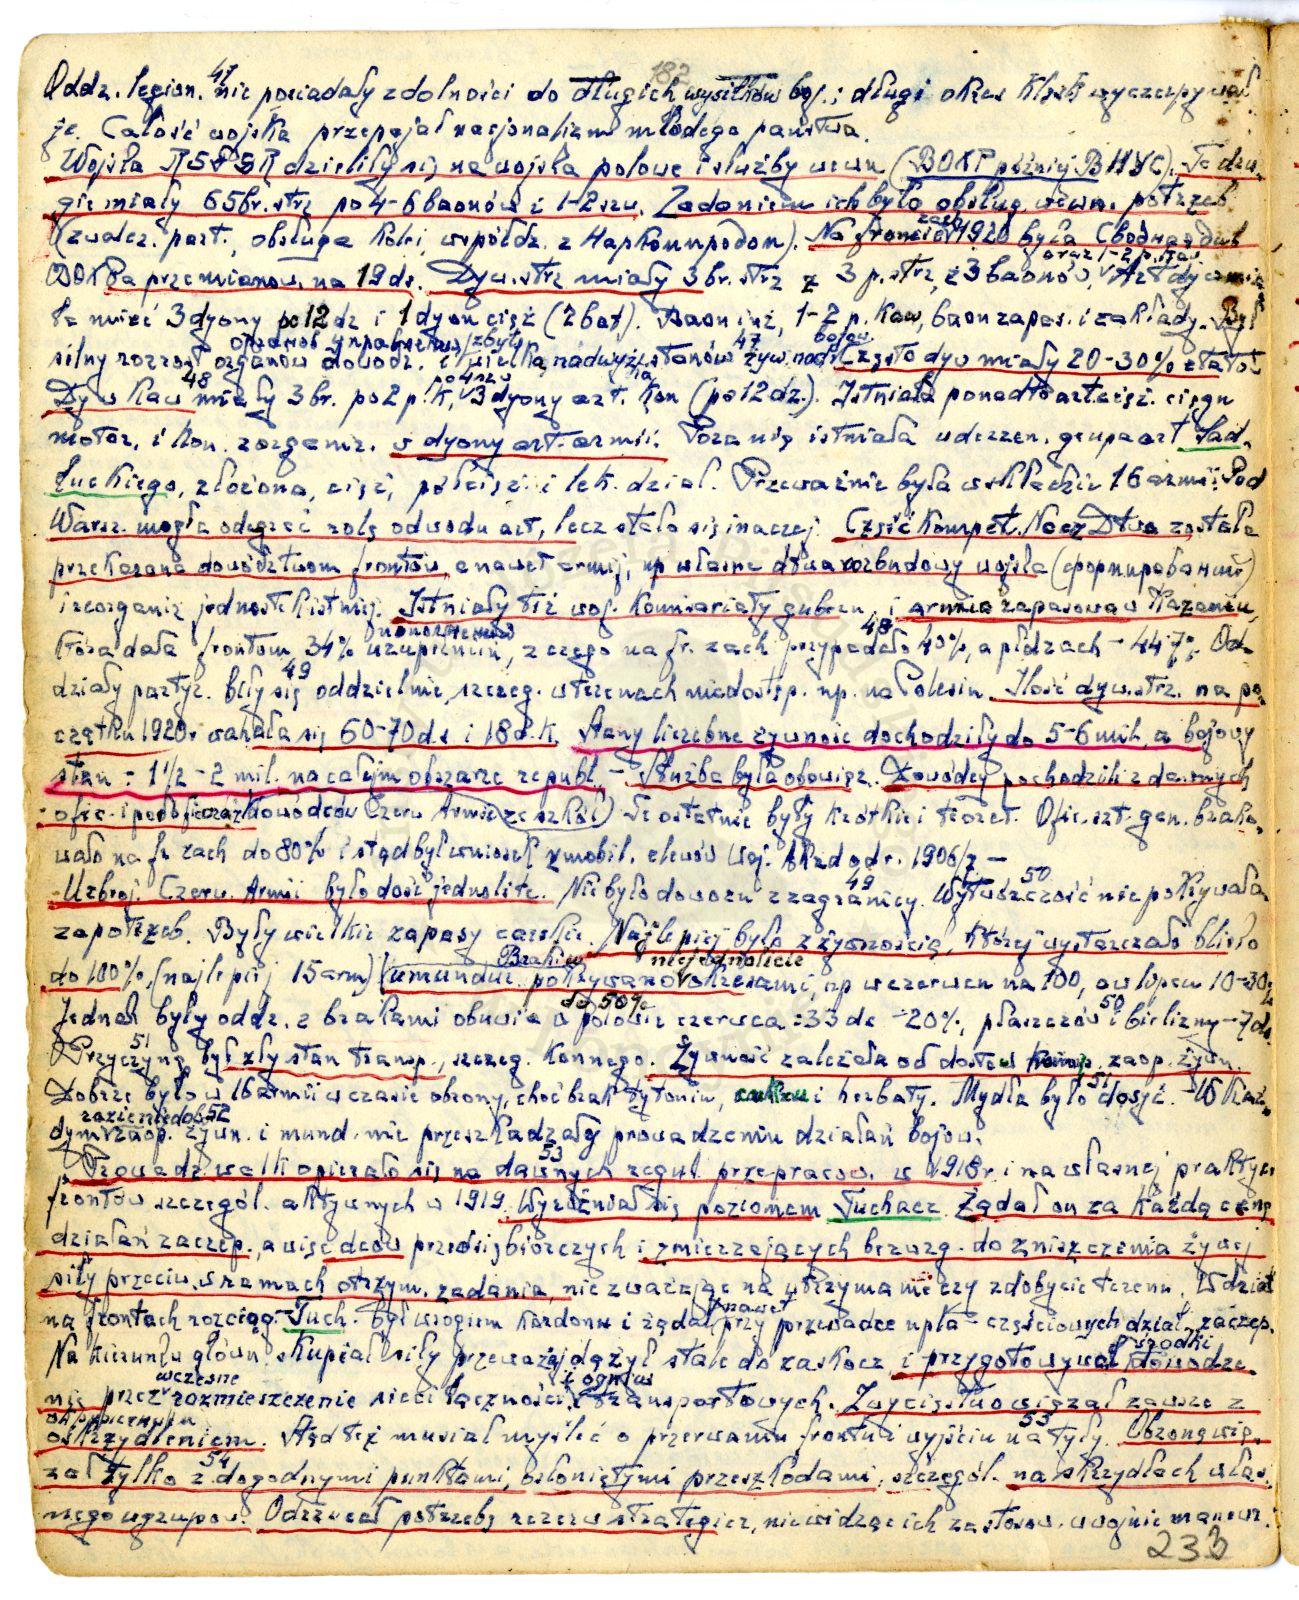 182
Oddz. legion. 47 nie posiadały zdolności do długich wysiłków boj.; długi okres klęsk wyczerpywał
je. Całość wojska przepajał nacjonalizm młodego państwa.
Wojska RSFSR dzieliły się na wojska polowe i służby wewn. (BOXP później BHYC). Te dru-
gie miały 65 br. strz po 4-6 baonów i 1-2 szw. Zadaniem ich było obsług. wewn. potrzeb
(zwalcz. part., obsługa kolei, współdz. z Наркомпродом). Na froncie zach 1920 była Сводная
przemianow. na 19 ds. Dyw. strz miały 3 br. strz z 3 p. strz, z 3 baonów, oraz 1-2 p. Art dyw
ta mieć 3 dyony po 12 dz i 1 dyon cięż (2 bat). Baon inż, 1-2 p. kaw, baon zapas. i zakłady. Był
silny rozrost organów dowodz. i wielka nadwyż. stanów 47 żyw. nad bojow. Często dyw miały 20-30% etatów
Dyw kaw 48 miały 3 br. po 2 p. k., 3 dyony art. kon (po 12 dz.). Istniała ponadto art. cięż. ciągn
motor. i kon. zorganiz. w dyony art. armii. Poza nią istniała uderzen. grupa art Sad.
łuckiego, złożona, cięż, półcięż. i lek. dział. Przeważnie była w składzie 16 armii. Pod
Warsz. mogła odegrać rolę odwodu art, lecz stało się inaczej. Część kompet. Nacz Dtwa została
przekazana dowództwom frontów, a nawet armij, np własne dtwa rozbudowy wojska
i reorganiz jednostek istniej. Istniały też woj. komisariaty gubern. i armia zapasowa w Kazaniu,
która dała frontom 34% uzupełnień, z czego na fr. zach przypadało 48 40%, a płdzach - 44,7%. Od-
działy partyz. biły się 49 oddzielnie, szczeg. w terenach niedostęp. np. na Polesiu. Ilość dyw. strz. na po-
czątku 1920 r wahała się 60-70 ds i 18 d.k. Stany liczebne żywnośc dochodziły do 5-6 mil, a bojowy
stan - 1 1/2 - 2 mil. na całym obszarze republ. - Służba była obowiąz. Dowódcy pochodzili z dawnych
ofic. i podofic oraz dowódców Czerw Armii ze szkół. Te ostatnie były krótkie i teoret. Ofic. szt. gen. brako-
wało na fr. zach do 80% i stąd był wniosek zmobil. elewów Woj. Akad od r. 1906/7 -
Uzbroj. Czerw. Armii było dość jednolite. Nie było dowozu z zagranicy. 49 Wytwórczość 50 nie pokrywała
zapotrzeb. Były wielkie zapasy carskie. Najlepiej było z żywnością, której wystarczało blisko
do 100%, (najlepiej 15 arm) Braki w umundur. pokrywano niejednolicie okresami, np w czerwcu na 100, a w lipcu 10-30%
Jednak były oddz. z brakami obuwia do 50% w połowie czerwca: 33 ds - 20%, płaszczów 50 i bielizny - 7 ds.
Przyczyną 51 był zły stan transp., szczeg. konnego. Żywność zależała od dostaw zaop. żywn.
Dobrze było w 16 armii w czasie obrony, choć brak tytoniu, cukru i herbaty. Mydła było 51 dosyć. - W każ-
dym razie niedob. 52 zaop. żywn. i mund. nie przeszkadzały prowadzeniu działań bojow.
Prowadz. walk opierało się na dawnych 53 regul. przepracow. w 1918 r. i na własnej praktyce
frontów szczegól. aktywnych w 1919. Wyróżniał się poziomem Tuchacz. Żądał on za każdą cenę
działań zaczep., a więc dców przedsiębiorczych i zmierzających bezwzg. do zniszczenia żywej
siły przeciw. w ramach otrzym. zadania, nie zważając na utrzymanie czy zdobycie terenu. W dział
na frontach rozciąg. Tuch. był wrogiem kordonu i żądał nawet przy przewadze npla - częściowych dział. zaczep.
Na kierunku główn. skupiał siły przeważaj. dążył stale do zaskocz. i przygotowywał środki dowodze-
nia przez wczesne rozmieszczenie sieci łączności i ogniw transportowych. Zwycięstwo wiązał zawsze z
oskrzydleniem. Stąd też musiał myśleć o przerwaniu frontu i wyjściu na tyły. 53 Obronę wią-
zał 54 tylko z dogodnymi punktami, osłoniętymi przeszkodami, szczegól. na skrzydłach włas-
nego ugrupow. Odrzucał potrzebę rezerw strategicz, nie widząc ich zastosow. w wojnie manewr.
233